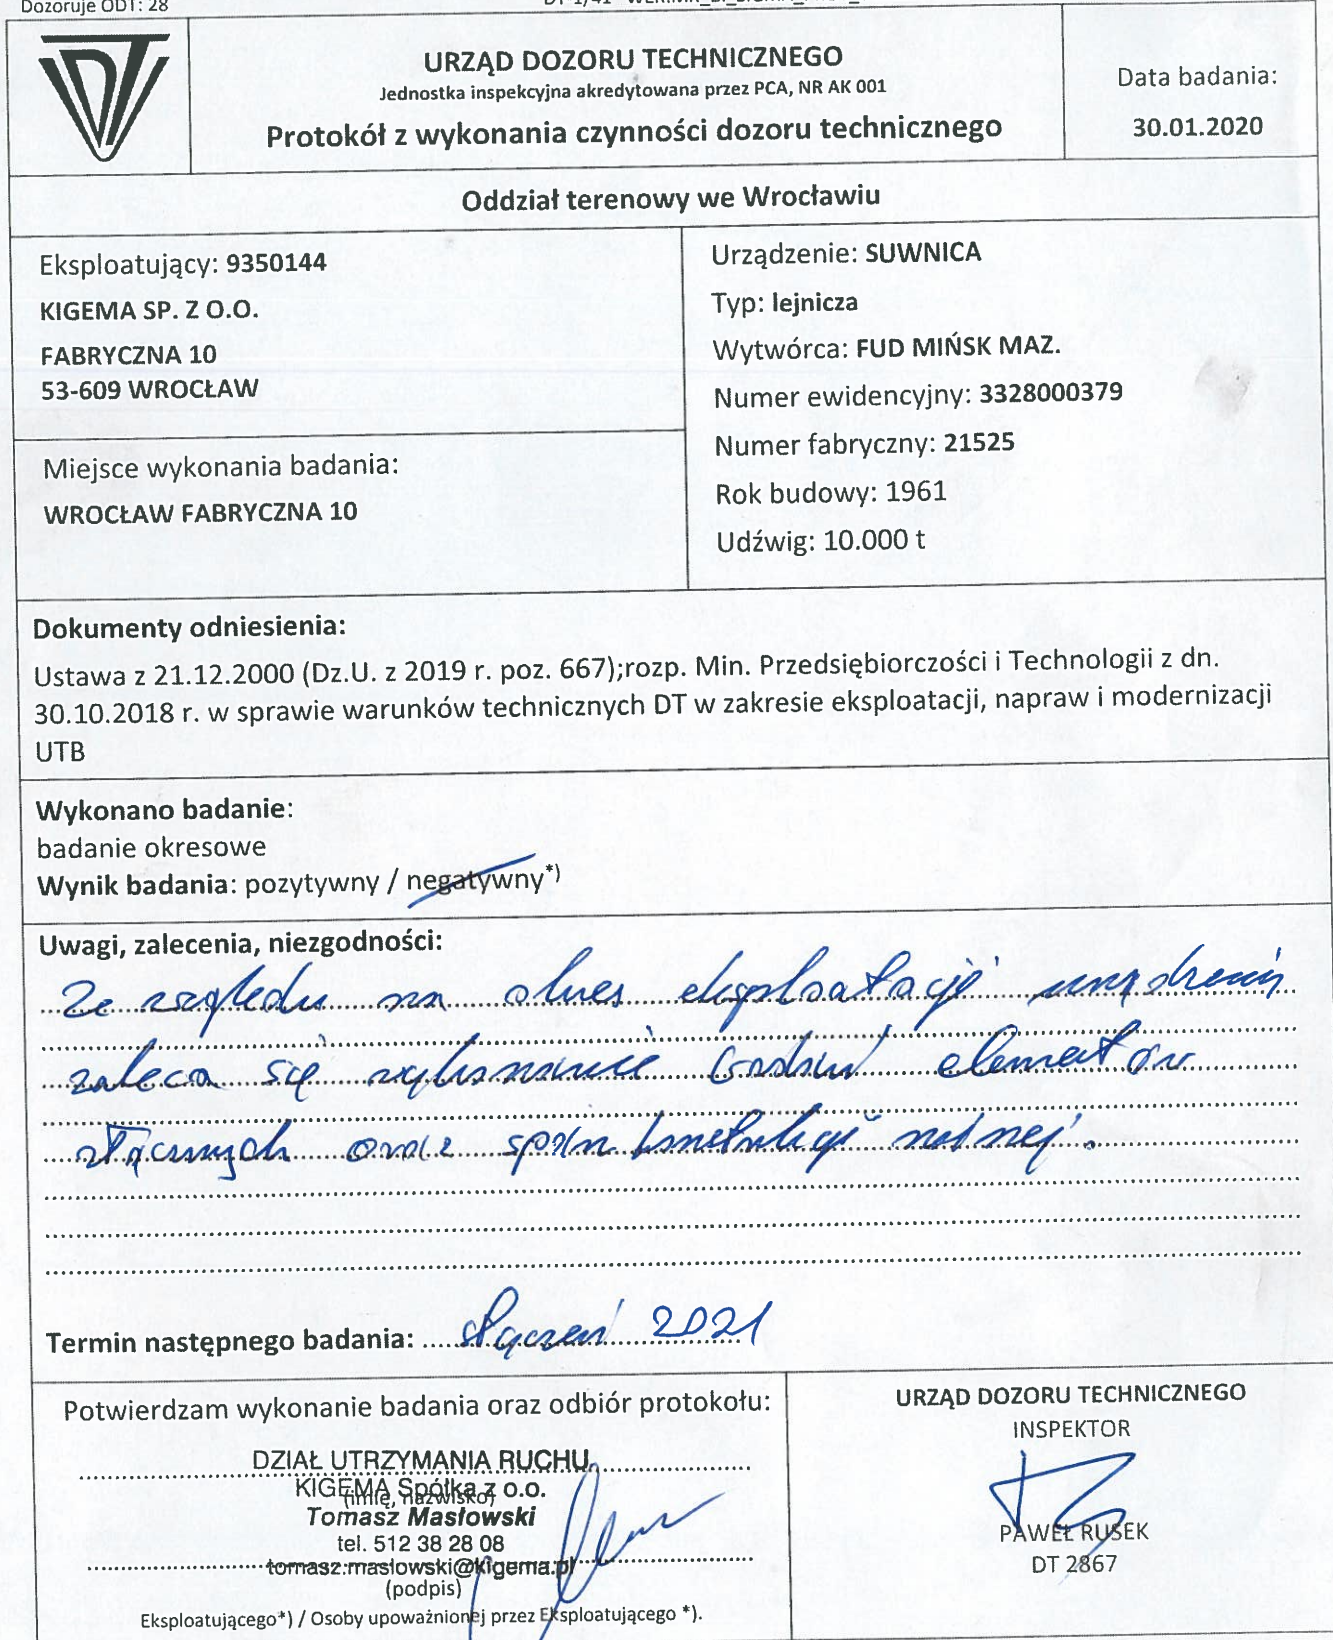 Dozoruje ODT: 28
URZĄD DOZORU TECHNICZNEGO
Jednostka inspekcyjna akredytowana przez PCA, NR AK 001
Protokół z wykonania czynności dozoru technicznego
Data badania:
30.01.2020
Oddział terenowy we Wrocławiu
Eksploatujący: 9350144
KIGEMA SP. Z O.O.
FABRYCZNA 10
53-609 WROCŁAW
Miejsce wykonania badania:
WROCŁAW FABRYCZNA 10
Urządzenie: SUWNICA
Typ: lejnicza
Wytwórca: FUD MIŃSK MAZ.
Numer ewidencyjny: 3328000379
Numer fabryczny: 21525
Rok budowy: 1961
Udźwig: 10.000 t
Dokumenty odniesienia:
Ustawa z 21.12.2000 (Dz.U. z 2019 r. poz. 667);rozp. Min. Przedsiębiorczości i Technologii z dn.
30.10.2018 r. w sprawie warunków technicznych DT w zakresie eksploatacji, napraw i modernizacji
UTB
Wykonano badanie:
badanie okresowe
Wynik badania: pozytywny / negatywny*)
Uwagi, zalecenia, niezgodności:
Ze względu na okres eksploatacji urządzenia
zaleca się wykonanie badań elementów
złącznych oraz spoin konstrukcji nośnej.
Termin następnego badania: styczeń 2021
Potwierdzam wykonanie badania oraz odbiór protokołu:
DZIAŁ UTRZYMANIA RUCHU
KIGEMA Spółka z o.o.
(imię, nazwisko)
Tomasz Masłowski
tel. 512 38 28 08
tomasz.maslowski@kigema.pl
(podpis)
Eksploatującego*) / Osoby upoważnionej przez Eksploatującego *).
URZĄD DOZORU TECHNICZNEGO
INSPEKTOR
PAWEŁ RUSEK
DT 2867